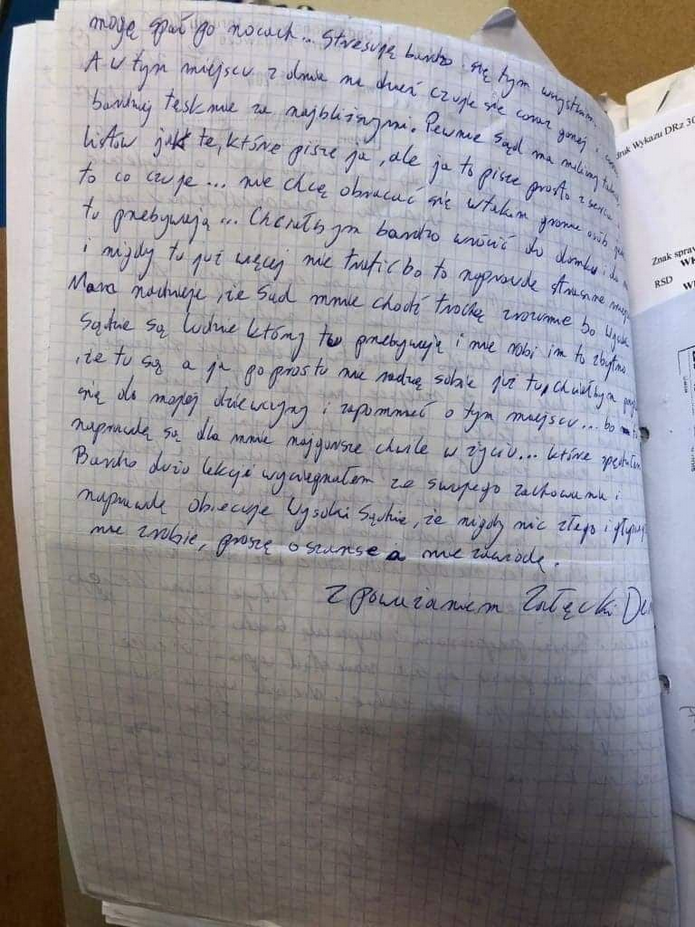 mogę spać po nocach... Stresuję bardzo się tym wszystkim.
A w tym miejscu z dnia na dzień czuje się coraz gorzej i coraz
bardziej tęsknie za najbliższymi. Pewnie Sąd ma miliony
listów jak te, które pisze ja, ale ja to pisze prosto z serca
to co czuje... nie chcę obracać się w takim gronie osób
tu przebywają... Chciałbym bardzo wrócić do domku i do
i nigdy tu już więcej nie trafić bo to naprawdę straszne
Mam nadzieje, że Sąd mnie chodź trochę zrozumie bo Wysoki
Sądzie są ludzie którzy tu przebywają i nie robi im to zbytnio
,że tu są a ja po prostu nie radzę sobie już tu, chciałbym
się do mojej dziewczyny i zapomnieć o tym miejscu... bo to
naprawdę są dla mnie najgorsze chwile w życiu... które
Bardzo dużo lekcji wyciągnąłem ze swojego zachowania i
naprawdę obiecuje Wysoki Sądzie, że nigdy nic złego i
nie zrobie, proszę o szanse a nie zawiodę.
Z poważaniem
ruk Wykazu DRz 30
Znak spraw
RSD